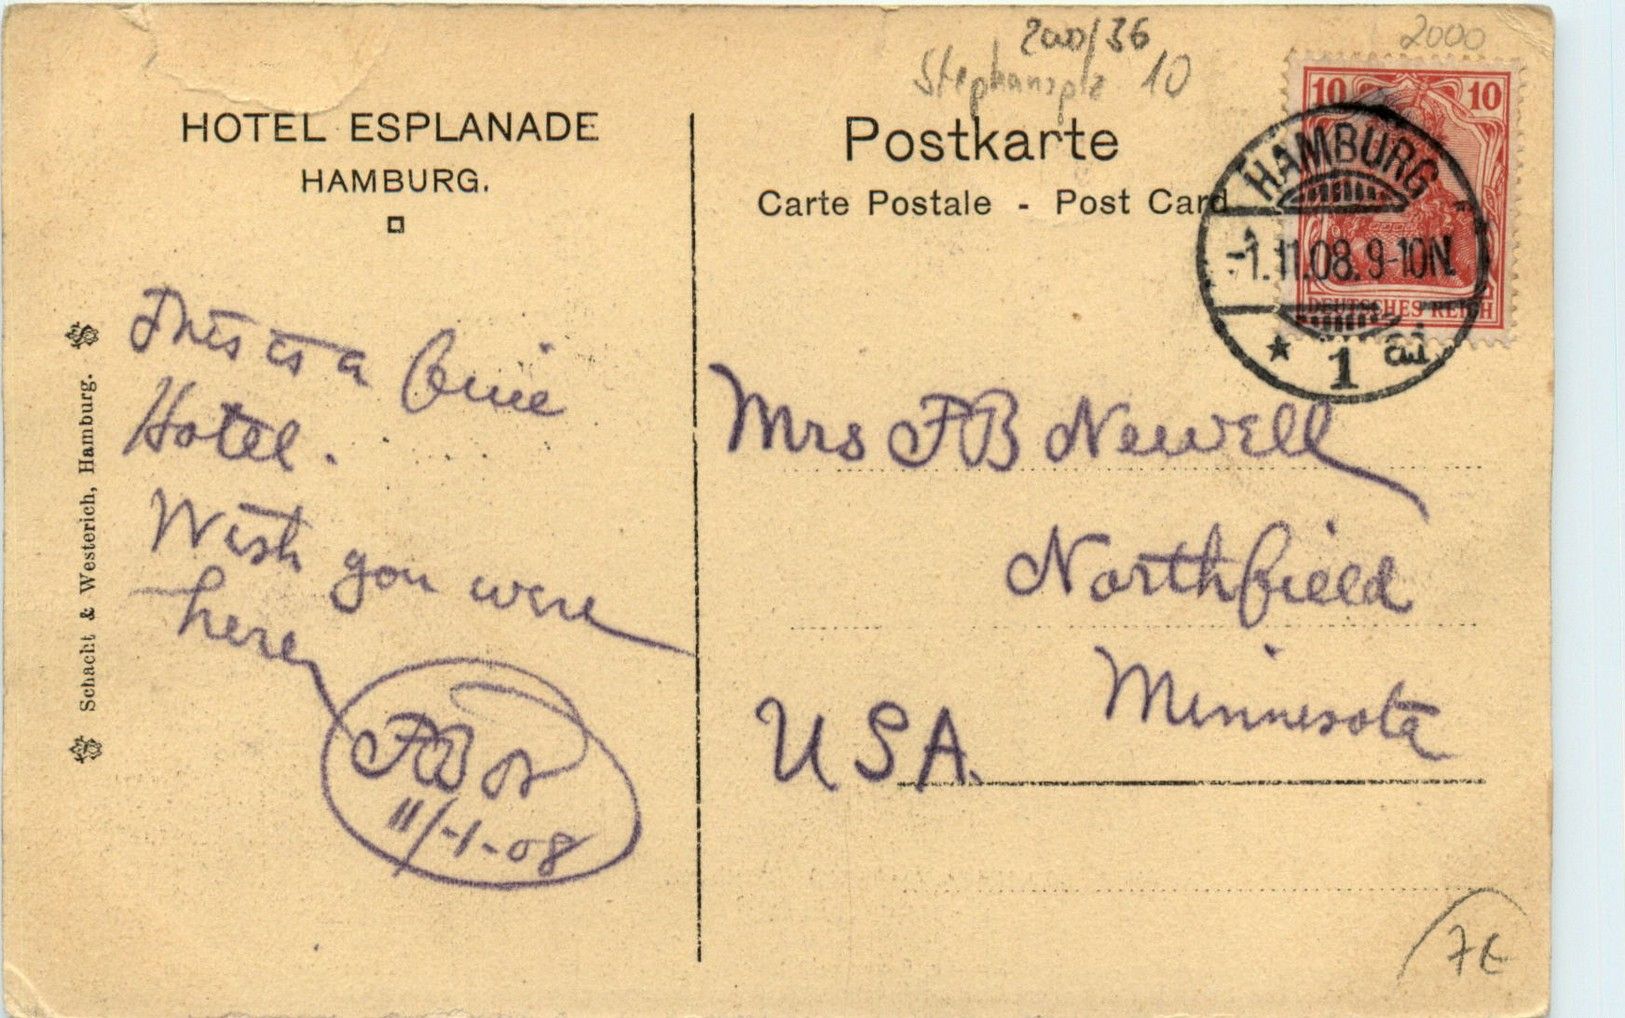 HOTEL ESPLANADE
HAMBURG.
This is a fine
Hotel.
Wish you were
here
FB
11/-1-08
Schacht & Westerich, Hamburg.
200/36
Stephansplz 10
2000
Postkarte
Carte Postale - Post Card
10 10
DEUTSCHES REICH
HAMBURG
-1.11.08.9-10N.
* 1 ai
Mrs FB Newell
Northfield
Minnesota
USA.
7€